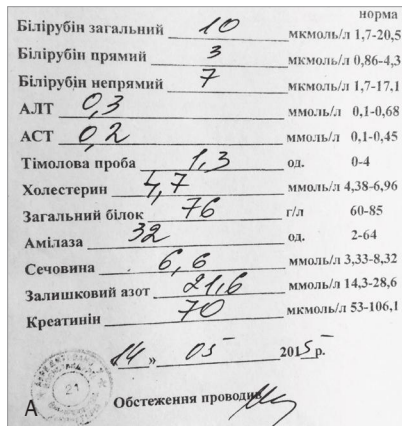 норма
Білірубін загальний 10 мкмоль/л 1,7-20,5
Білірубін прямий 3 мкмоль/л 0,86-4,3
Білірубін непрямий 7 мкмоль/л 1,7-17,1
АЛТ 0,3 ммоль/л 0,1-0,68
АСТ 0,2 ммоль/л 0,1-0,45
Тімолова проба 1,3 од. 0-4
Холестерин 4,7 ммоль/л 4,38-6,96
Загальний білок 76 г/л 60-85
Амілаза 32 од. 2-64
Сечовина 6,6 ммоль/л 3,33-8,32
Залишковий азот 21,6 ммоль/л 14,3-28,6
Креатинін 70 мкмоль/л 53-106,1
14 » 05 2015 р.
21
A Обстеження проводив